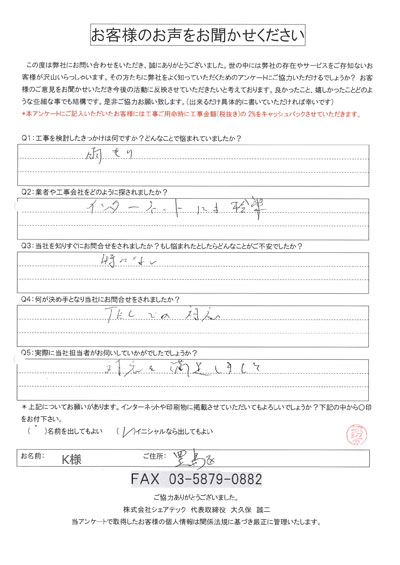 お客様のお声をお聞かせください
この度は弊社にお問い合わせをいただき、誠にありがとうございました。世の中には弊社の存在やサービスをご存知ないお
客様が沢山いらっしゃいます。その方たちに弊社をよく知っていただくためのアンケートにご協力いただけるでしょうか？ お客
様のご意見をお聞かせいただき今後の活動に反映させていただきたいと考えております。良かったこと、嬉しかったことどのよ
うな些細な事でも結構です。是非ご協力お願い致します。（出来るだけ具体的に書いていただければ幸いです）
*本アンケートにご記入いただいたお客様には工事ご用命時に工事金額(税抜き)の 2%をキャッシュバックさせていただきます。
Q1：工事を検討したきっかけは何ですか？どんなことで悩まれていましたか？
雨もり
Q2：業者や工事会社をどのように探されましたか？
インターネットによる検索
Q3：当社を知りすぐにお問合せをされましたか？もし悩まれたとしたらどんなことがご不安でしたか？
特になし
Q4：何が決め手となり当社にお問合せをされましたか？
TELでの対応
Q5：実際に当社担当者がお伺いしていかがでしたでしょうか？
対応も満足しました
＊上記についてお願いがあります。インターネットや印刷物に掲載させていただいてもよろしいでしょうか？下記の中から〇印
をお付下さい。
( )名前を出してもよい ( レ)イニシャルなら出してもよい
お名前： K様 ご住所：
FAX 03-5879-0882
ご協力ありがとうございました。
株式会社シェアテック 代表取締役 大久保 誠二
当アンケートで取得したお客様の個人情報は関係法規に基づき厳正に管理いたします。